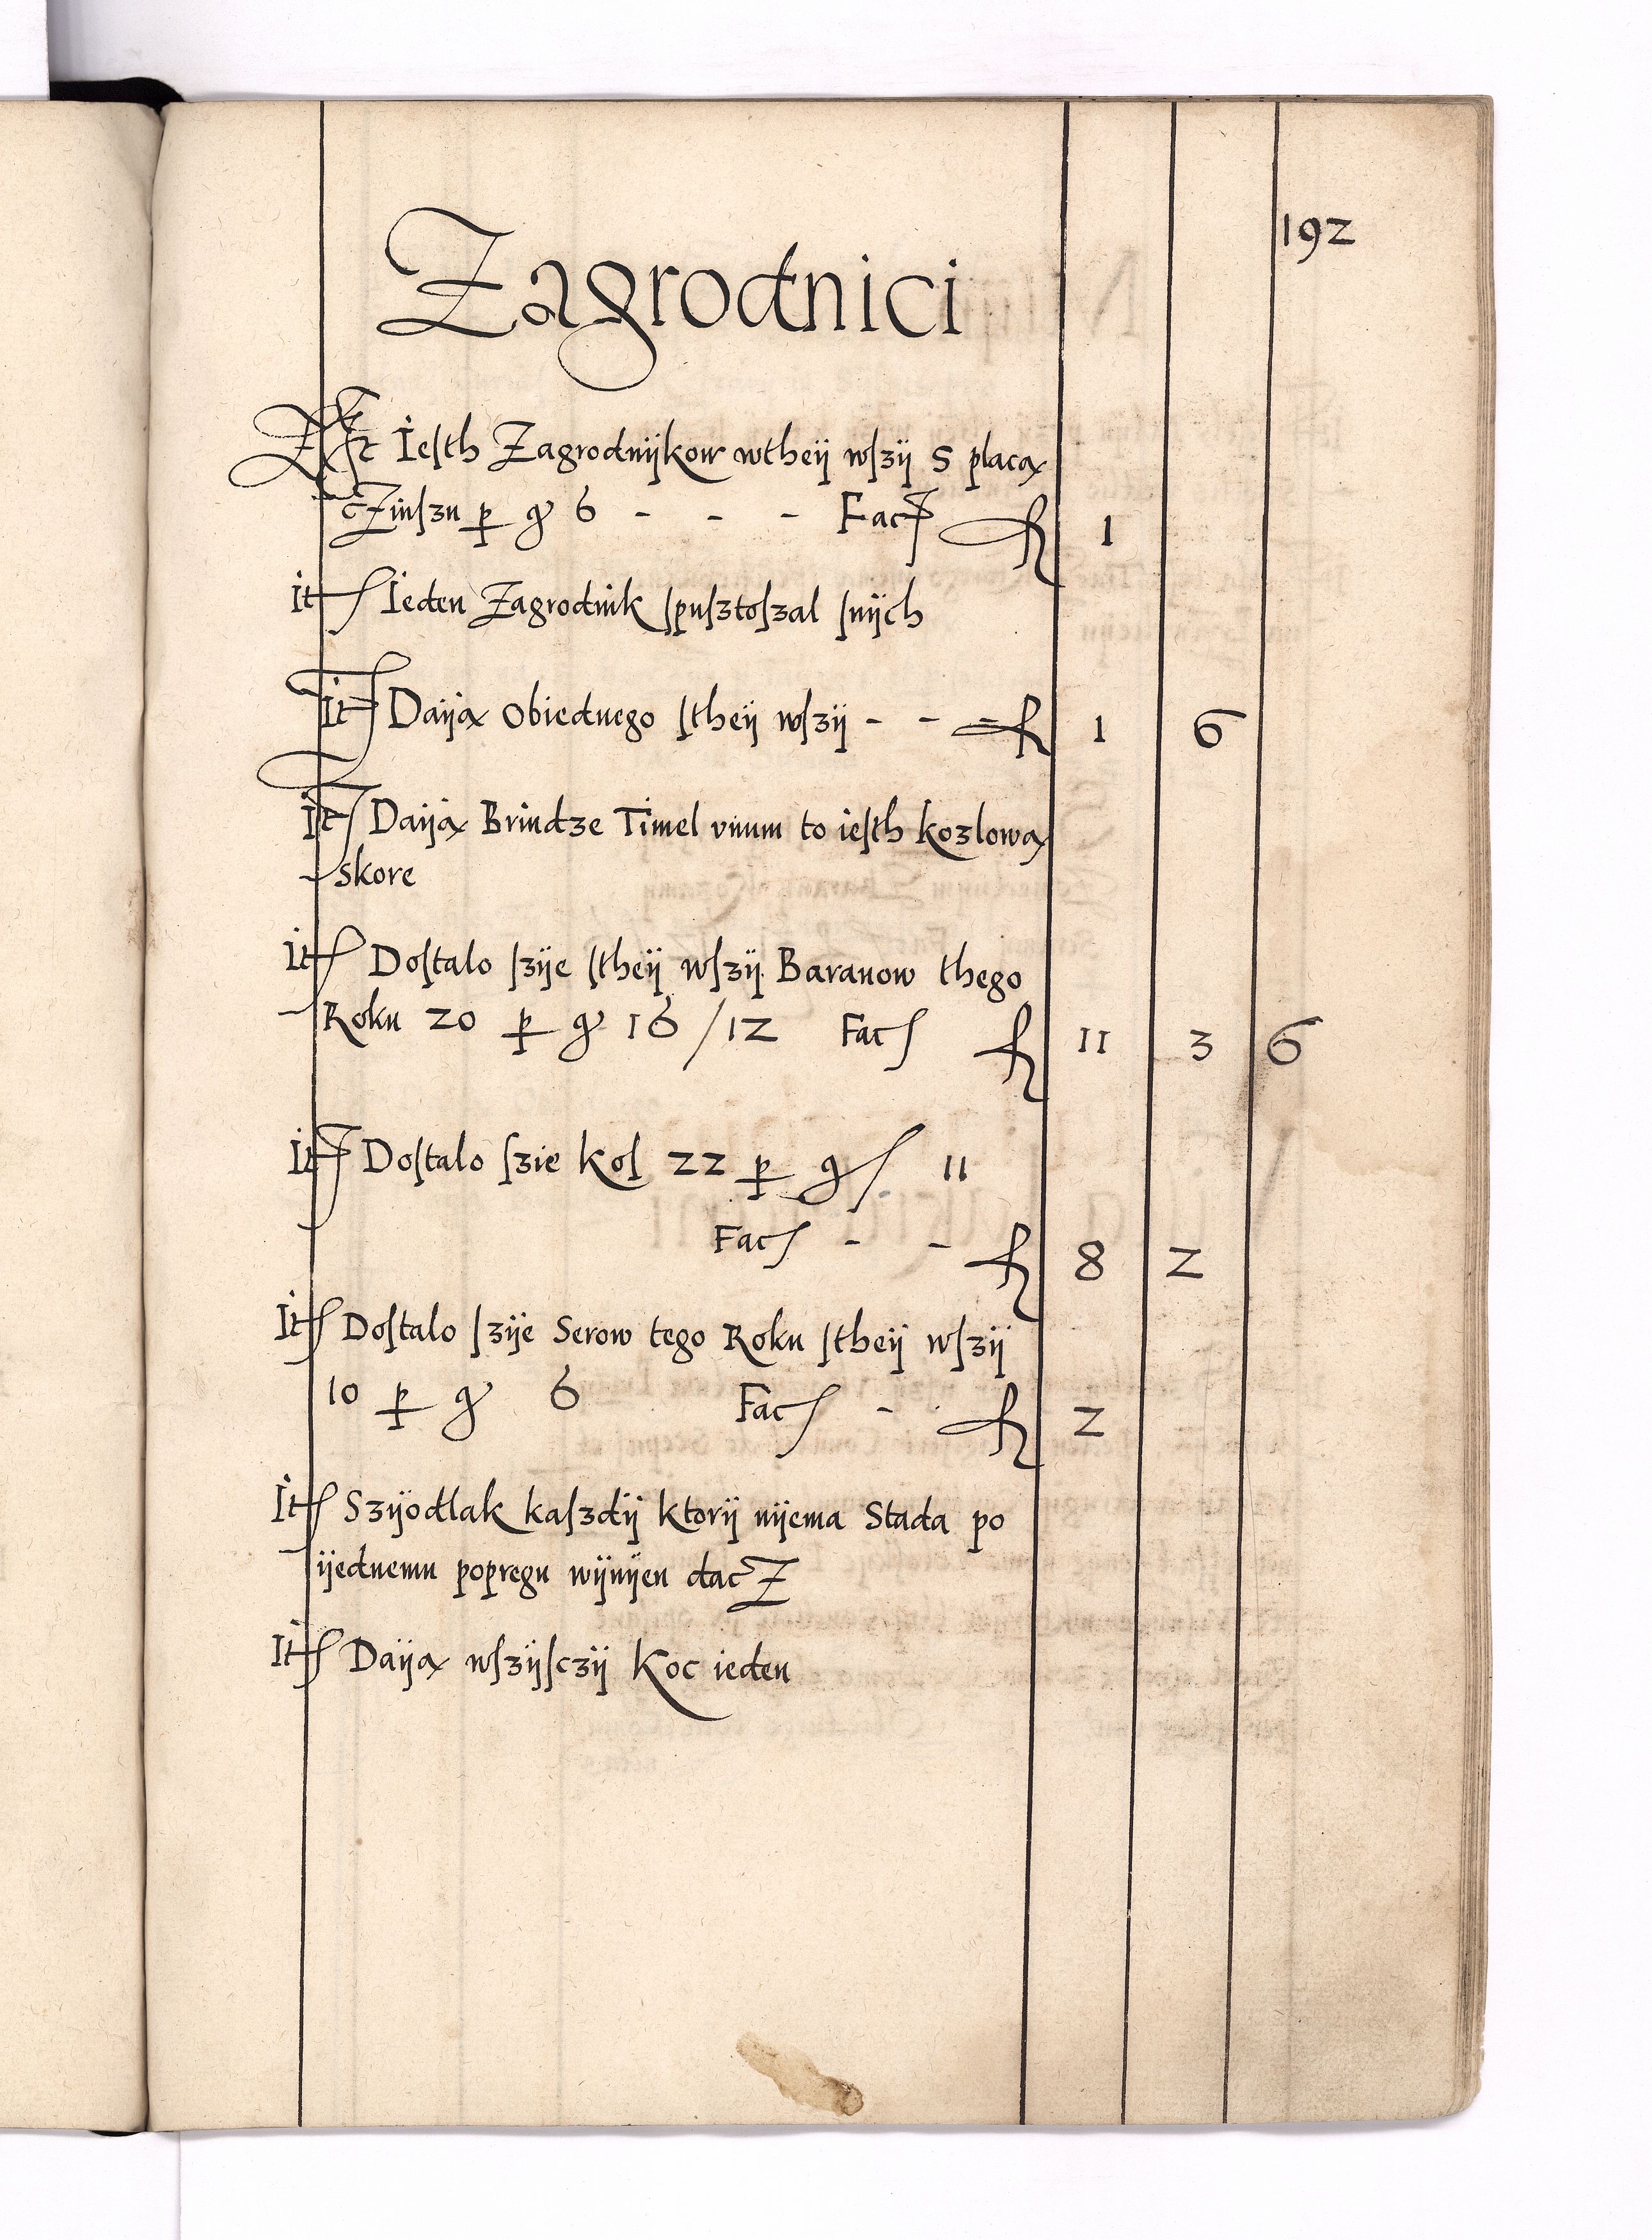 192
Zagrodnici
It Iesth Zagrodnÿkow wtheÿ wſzÿ 5 placą
cZinſzu p gͬ 6 - - - Fact fl 1
It Ieden Zagrodnik ſpuſztoſzal ſnÿch
It Daÿą Obiednego ſtheÿ wſzÿ - - fl 1 6
It Daÿą Brindze Timel vnum to ieſth kozlową
skore
It Doſtalo ſzÿe ſtheÿ wſzÿ Baranow thego
Roku 20 p gͬ 16 / 12 Fact fl 11 3 6
It Doſtalo ſzie koſ 22 p g 11
Fact - - fl 8 2
It Doſtalo ſzÿe Serow tego Roku ſtheÿ wſzÿ
10 p gͬ 6 Fact - fl 2
It Szÿodlak kaſzdÿ ktorÿ nÿema Stada po
ÿednemu popregu wÿnÿen dacZ
It Daÿą wſzÿſczÿ Koc ieden